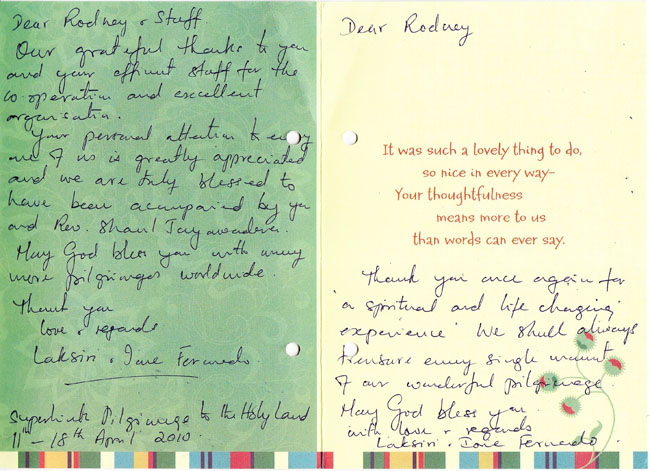 Dear Rodney & Staff.
Our grateful thanks to you
and your effient staff for the
co-operation and excellent
organisation.
Your personal attention to every
one of us is greatly appreciated
and we are truly blessed to
have been accompanied by you
and Rev. Shanil Jayawardena.
May God bless you with many
more pilgrimages worldwide.
Thank you
love & regards
Laksiri & Ione Fernando.
Superlink Pilgrimage to the Holy Land
11th - 18th April 2010.
Dear Rodney
It was such a lovely thing to do,
so nice in every way–
Your thoughtfulness
means more to us
than words can ever say.
Thank you once again for
'a spiritual and life changing'
experience' We shall always
treasure every single moment
of our wonderful pilgrimage.
May God bless you
with love & regards
Laksiri & Ione Fernando.